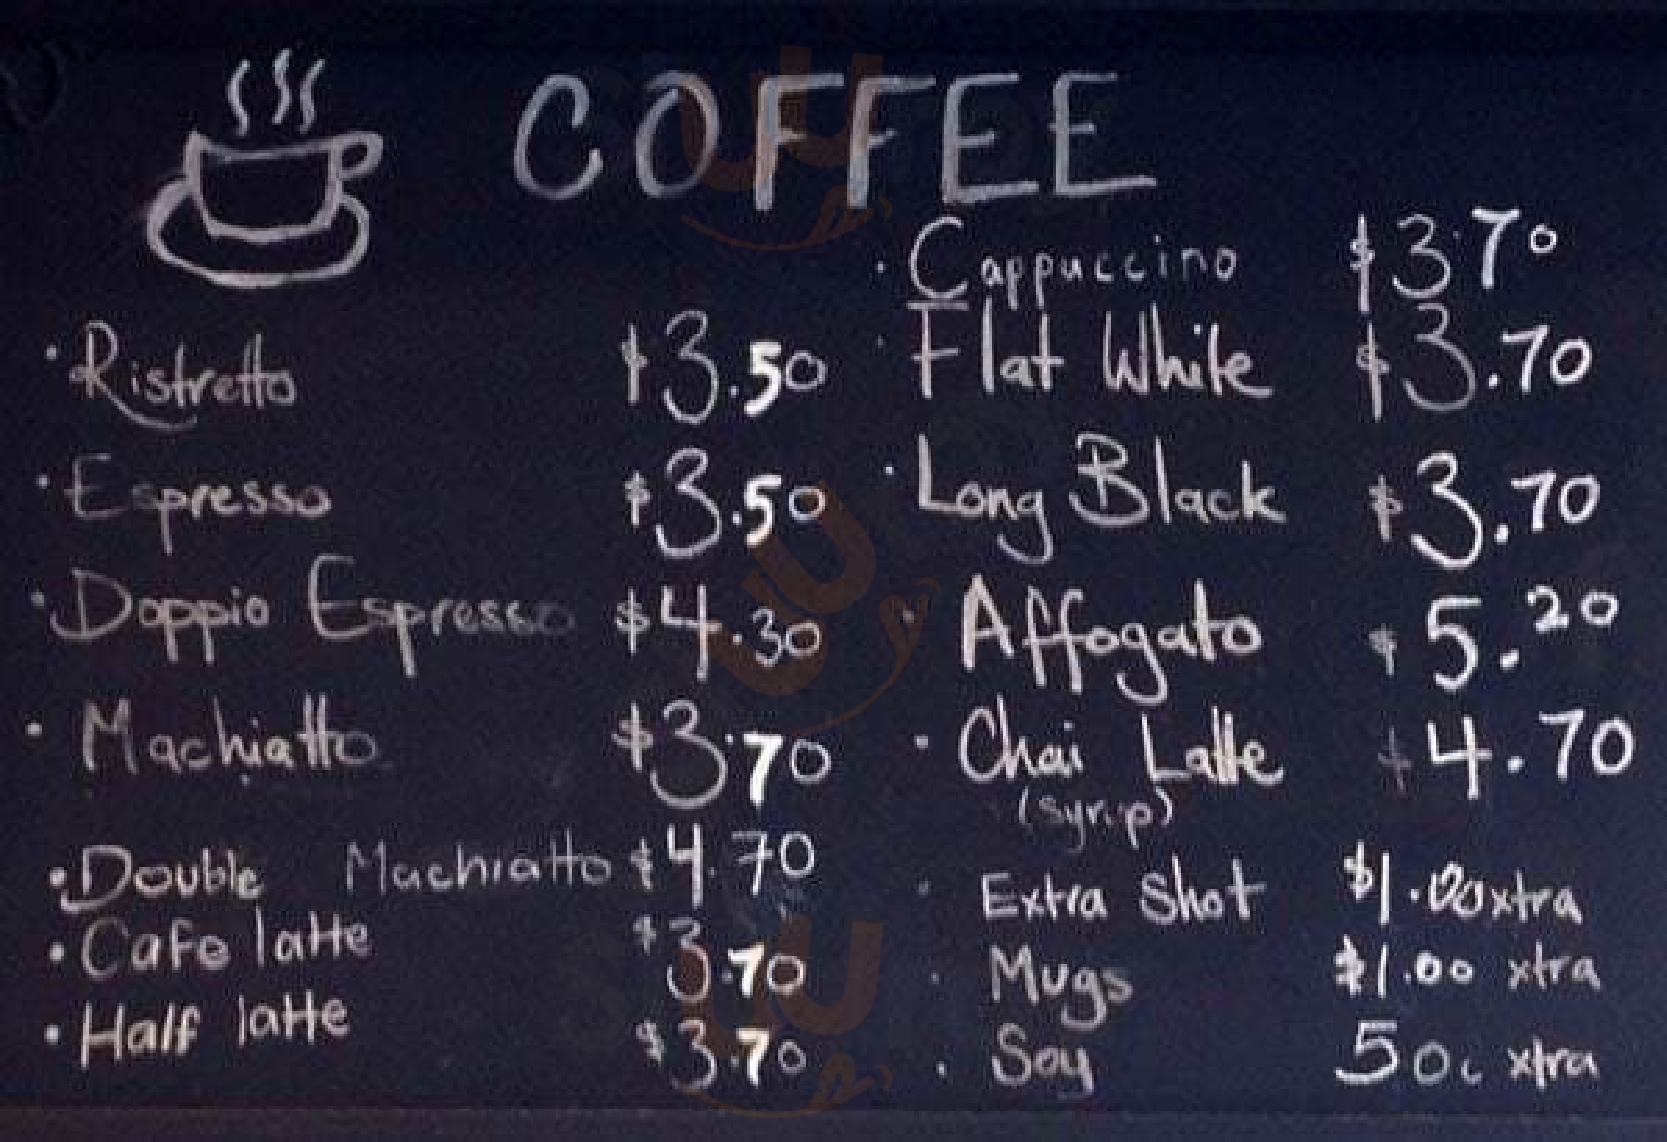 COFFEE
· Ristretto $3.50
· Espresso $3.50
· Doppio Espresso $4.30
· Machiatto $3.70
· Double Machiatto $4.70
· Cafe latte $3.70
· Half latte $3.70
· Cappuccino $3.70
· Flat White $3.70
· Long Black $3.70
· Affogato $5.20
· Chai Latte $4.70
(syrup)
· Extra Shot $1.00 xtra
· Mugs $1.00 xtra
· Soy 50c xtra